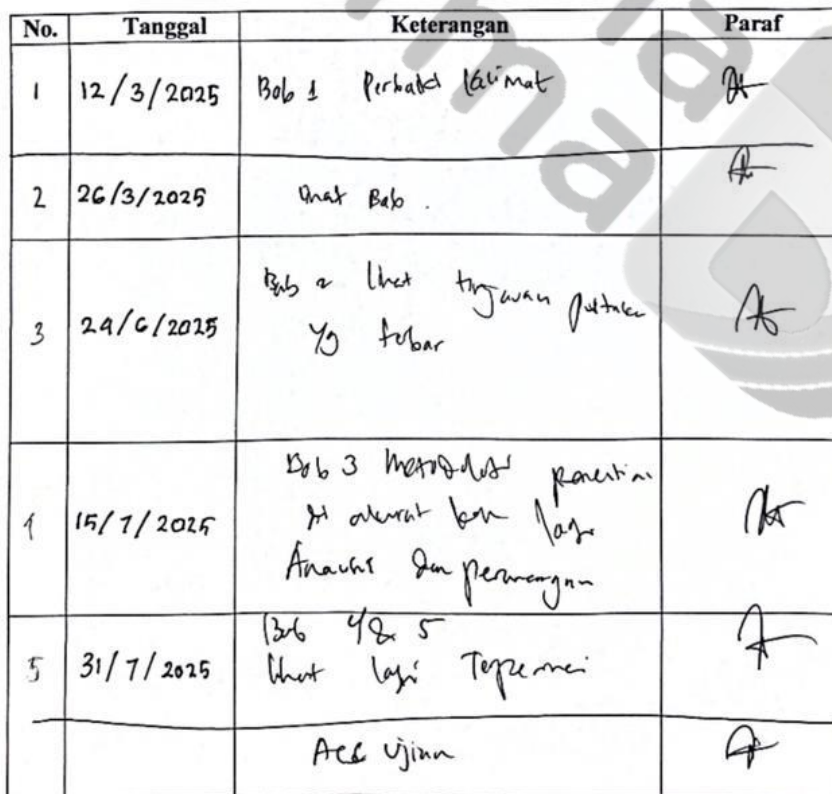 No. Tanggal Keterangan Paraf
1 12/3/2025 Bab 1 Perbaiki kalimat
2 26/3/2025 Bab.
3 24/6/2025 Bab 2 lihat tinjauan pustaka
yg
15/7/2025 Bab 3 Metodologi penelitian
di akurat kan lagi
Analisis dan perancangan
Bab 4 & 5
5 31/7/2025 lihat lagi
Acc Ujian